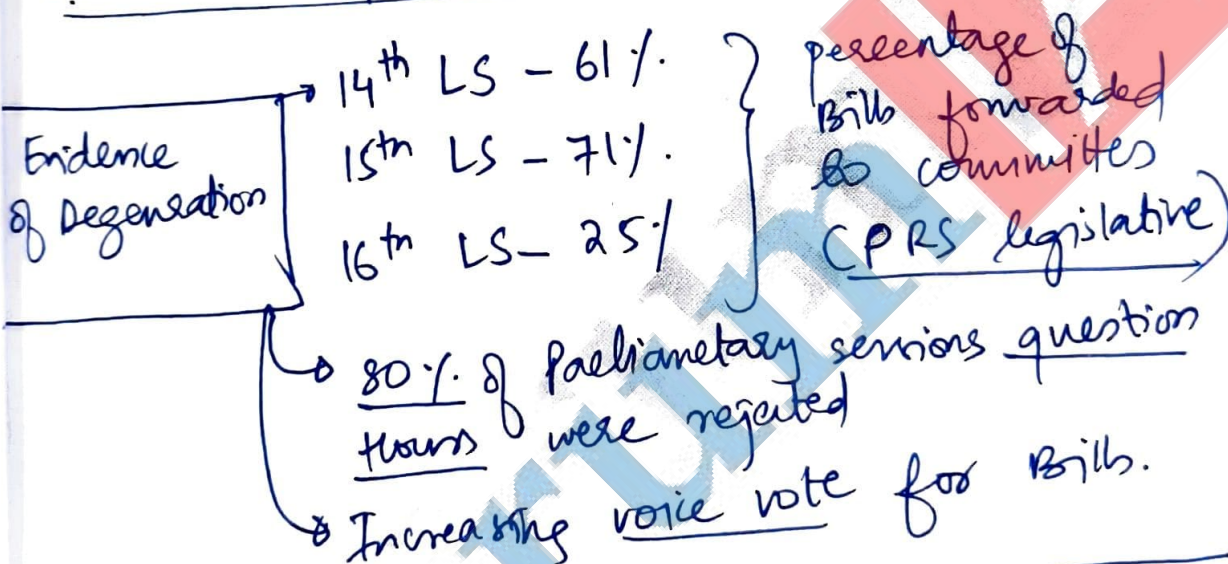 Evidence
of Degenration
14th LS - 61%.
15th LS - 71%.
16th LS - 25%
percentage of
Bills forwarded
to committes
(PRS legislative)
80% of Paelianetary sessions question
Hours were rejected
Increasing voice vote for Bills.
rum